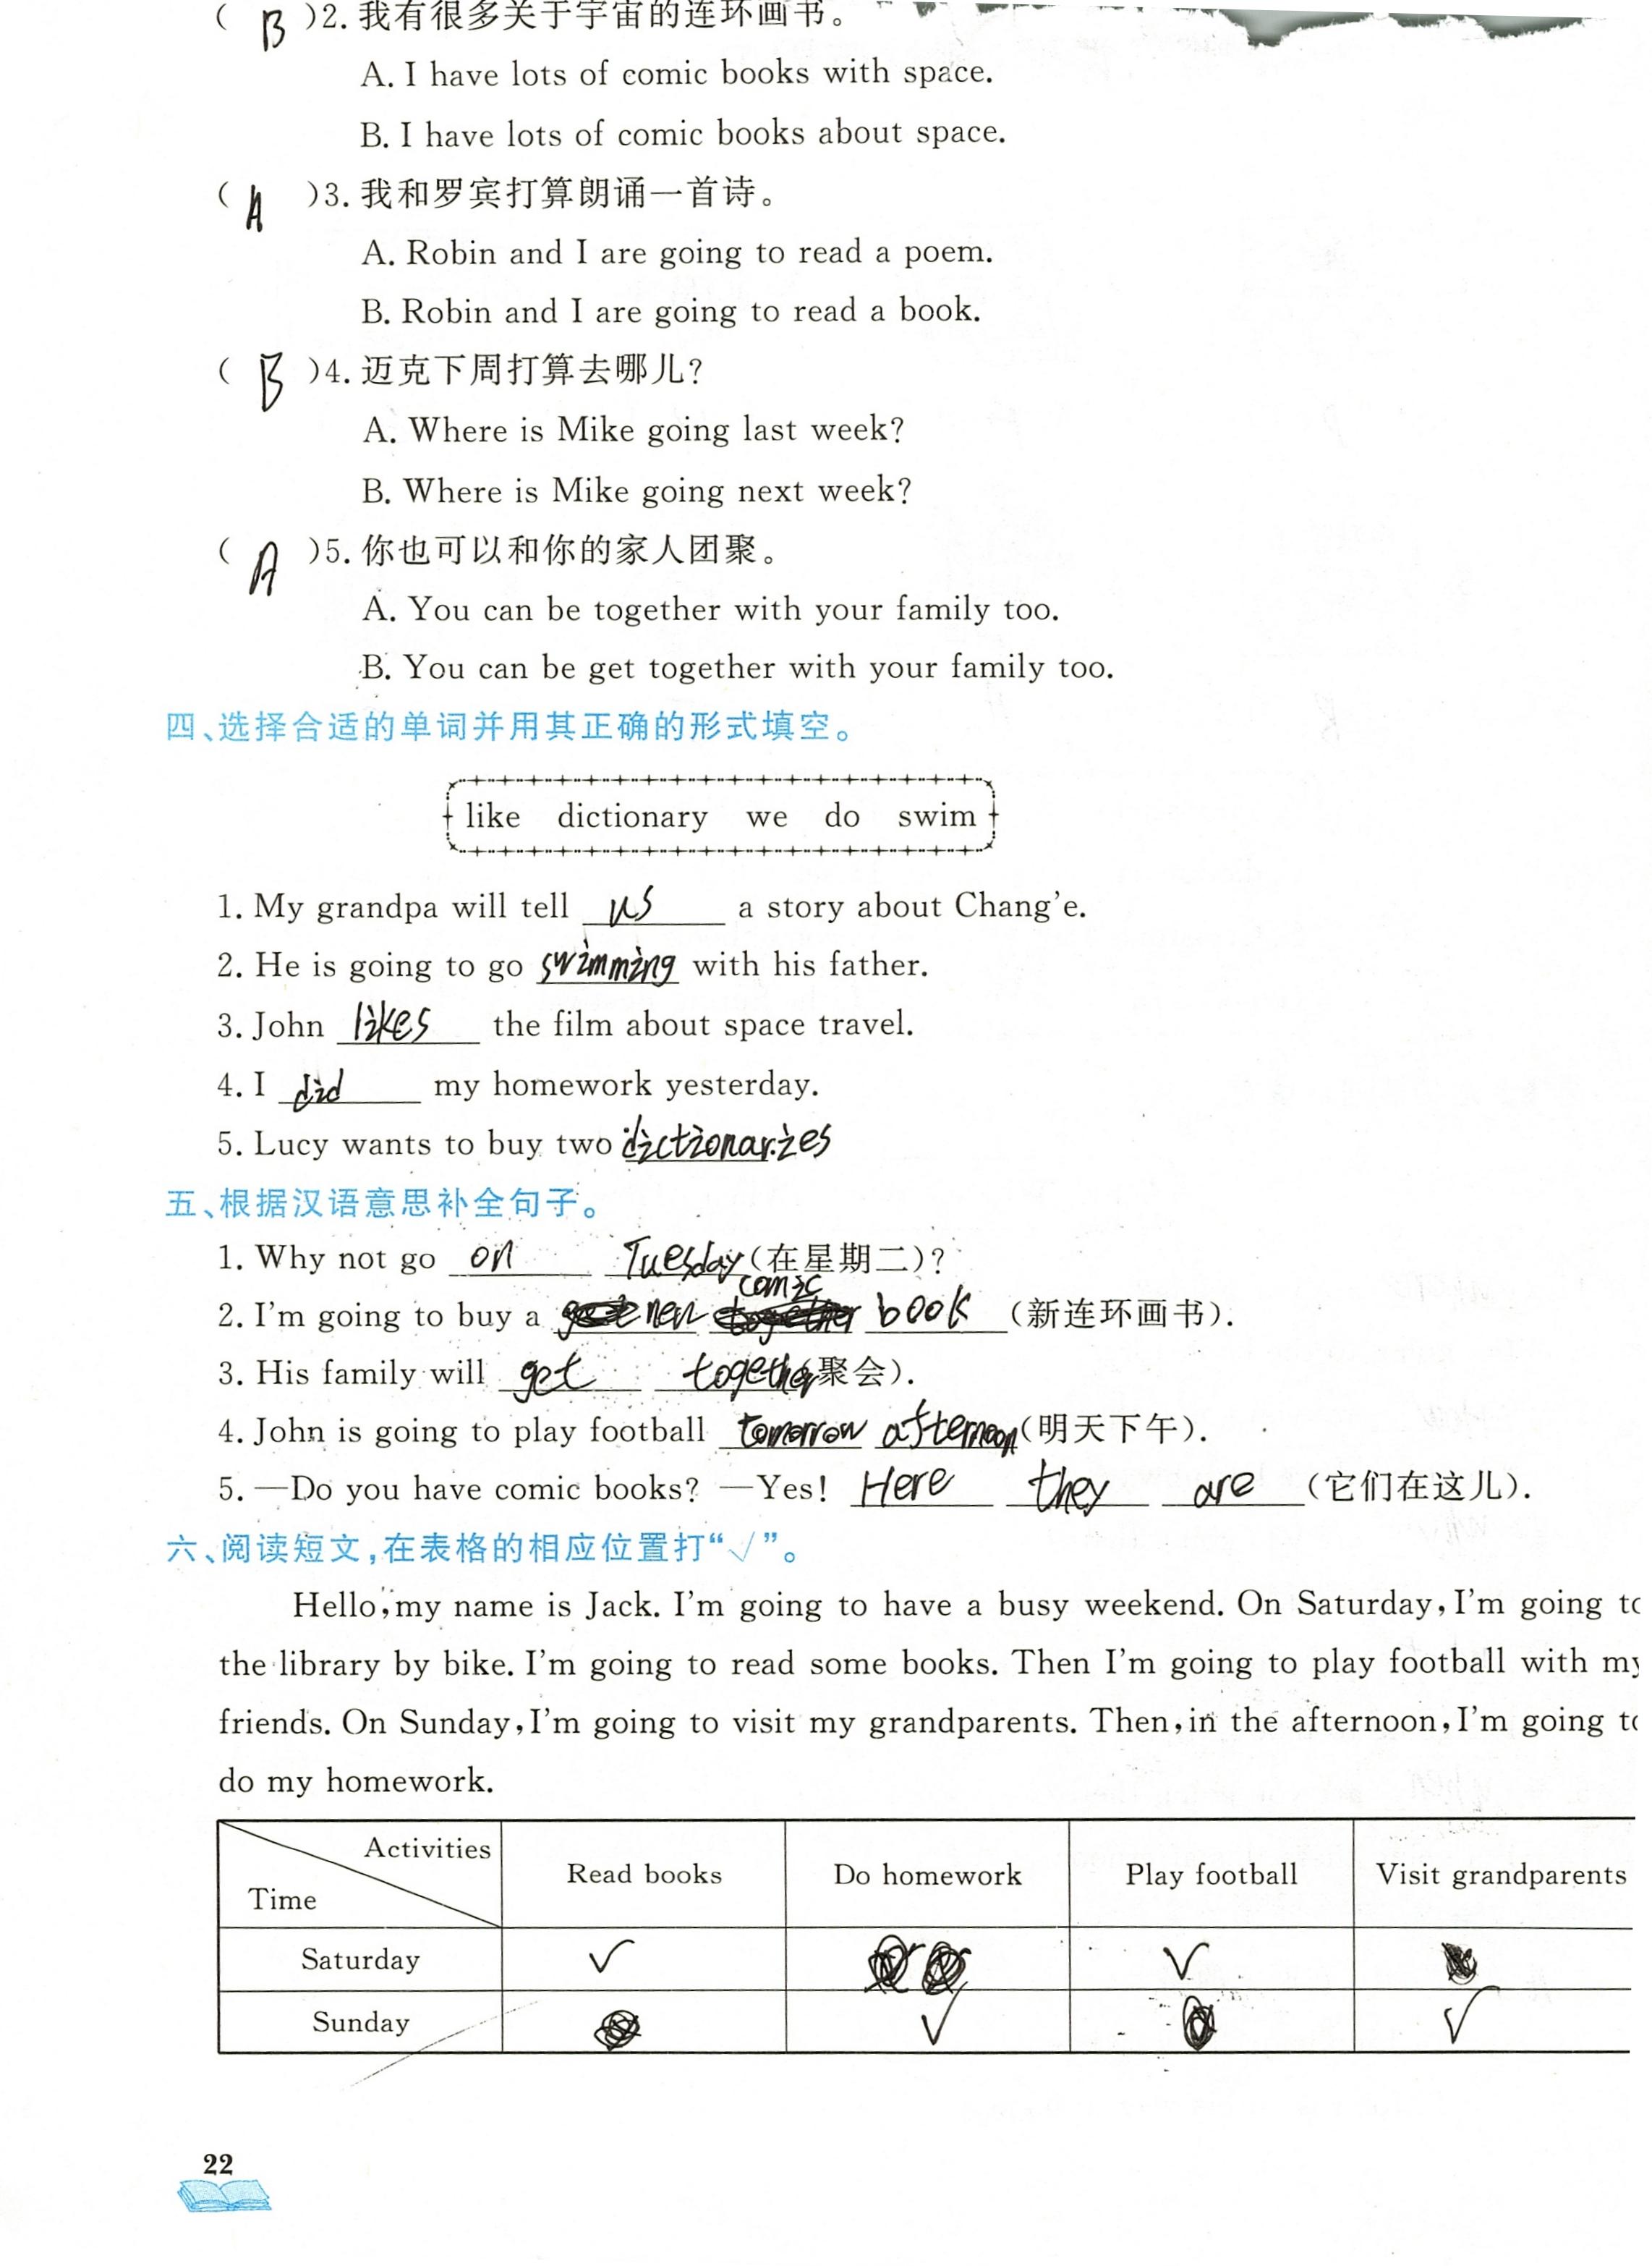 ( B )2. 我有很多关于宇宙的连环画书。
A. I have lots of comic books with space.
B. I have lots of comic books about space.
( A )3. 我和罗宾打算朗诵一首诗。
A. Robin and I are going to read a poem.
B. Robin and I are going to read a book.
( B )4. 迈克下周打算去哪儿?
A. Where is Mike going last week?
B. Where is Mike going next week?
( A )5. 你也可以和你的家人团聚。
A. You can be together with your family too.
B. You can be get together with your family too.
四、选择合适的单词并用其正确的形式填空。
like dictionary we do swim
1. My grandpa will tell us a story about Chang'e.
2. He is going to go swimming with his father.
3. John likes the film about space travel.
4. I did my homework yesterday.
5. Lucy wants to buy two dictionaries
五、根据汉语意思补全句子。
1. Why not go on Tuesday (在星期二)?
2. I'm going to buy a new comic book (新连环画书).
3. His family will get together (聚会).
4. John is going to play football tomorrow afternoon (明天下午).
5. —Do you have comic books? —Yes! Here they are (它们在这儿).
六、阅读短文,在表格的相应位置打“√”。
Hello, my name is Jack. I'm going to have a busy weekend. On Saturday, I'm going to
the library by bike. I'm going to read some books. Then I'm going to play football with my
friends. On Sunday, I'm going to visit my grandparents. Then, in the afternoon, I'm going to
do my homework.
Activities
Time
Read books Do homework Play football Visit grandparents
Saturday ✓ ✓
Sunday ✓ ✓
22